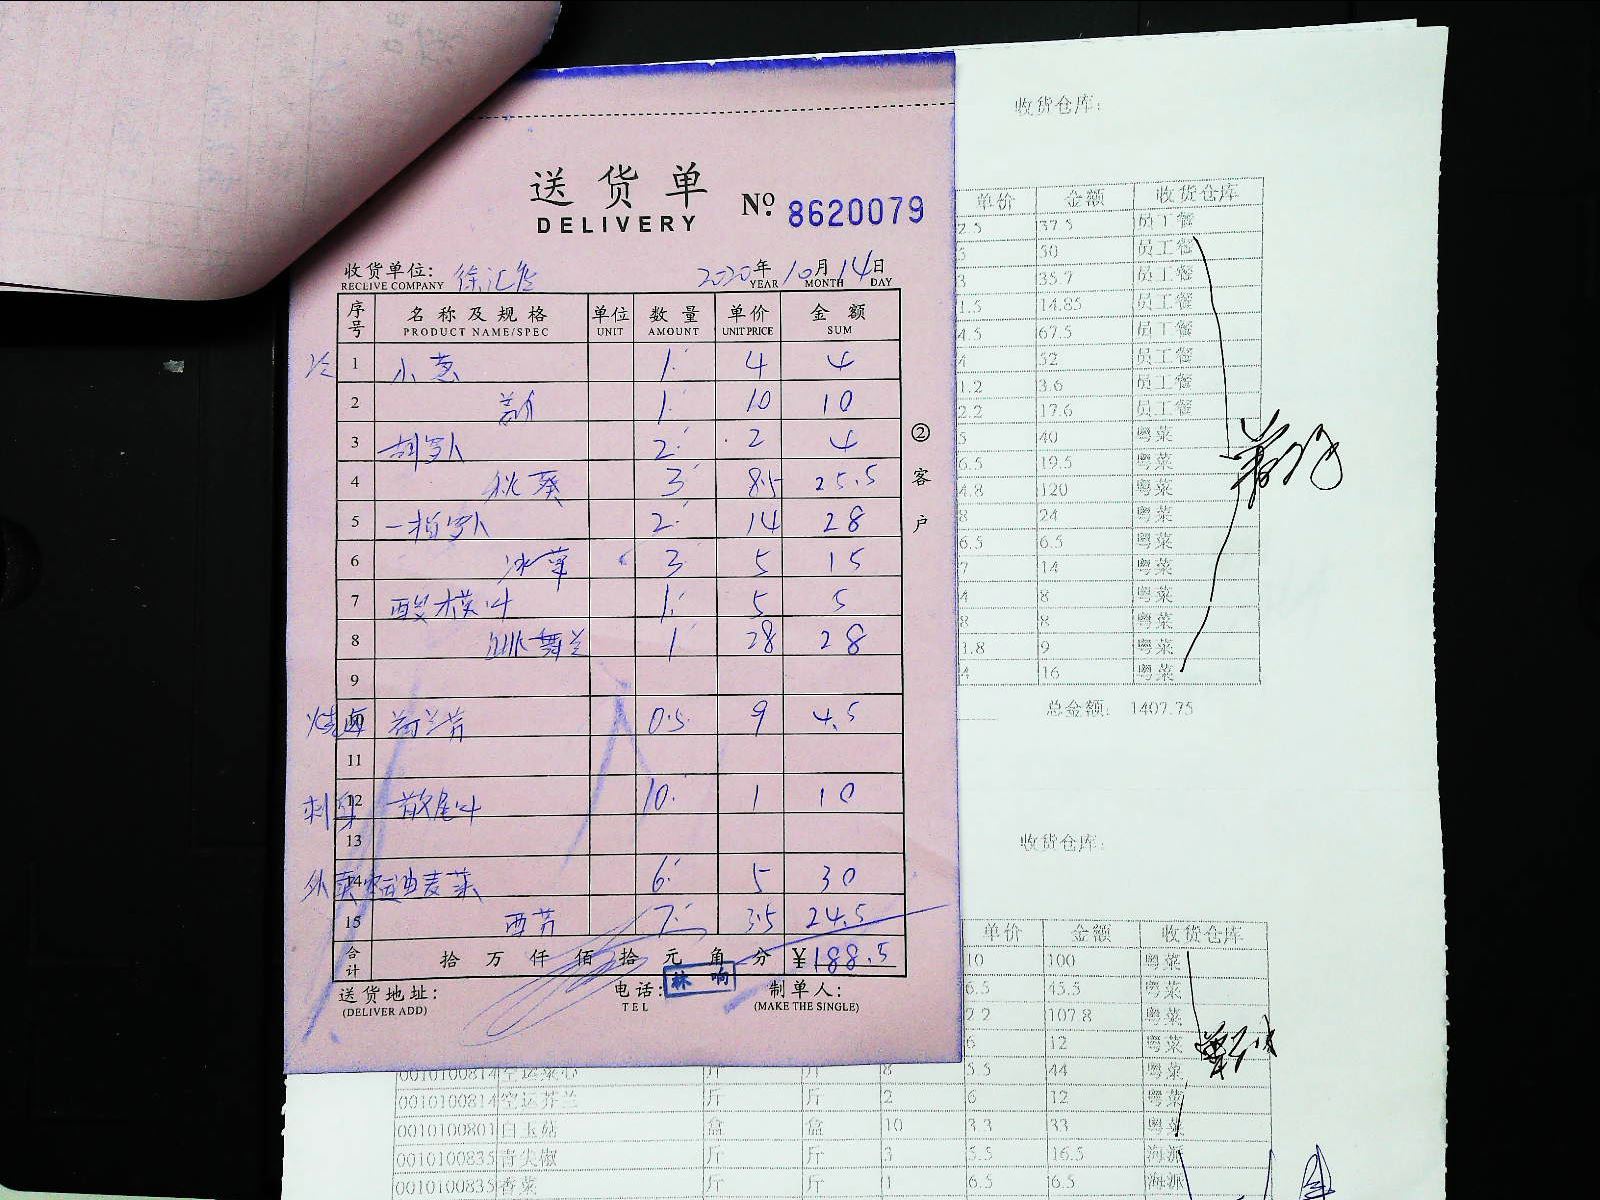 送货单
DELIVERY
№ 8620079
收货单位: 徐汇 2020年10月14日
RECLIVE COMPANY YEAR MONTH DAY
序号 名称及规格 单位 数量 单价 金额
PRODUCT NAME/SPEC UNIT AMOUNT UNIT PRICE SUM
1 小葱 1 4 4
2 1 10 10
3 胡罗卜 2 2 4
4 秋葵 3 8.5 25.5
5 一指罗卜 2 14 28
6 冰草 3 5 15
7 酸模叶 1 5 5
8 跳舞兰 1 28 28
9
10 荷兰芹 0.5 9 4.5
11
刺身 12 散尾叶 10 1 10
13
外卖 14 麦菜 6 5 30
15 西芹 7 3.5 24.5
合计 拾 万 仟 佰 拾 元 角 分 ¥188.5
送货地址: 电话: 林响 制单人:
(DELIVER ADD) TEL (MAKE THE SINGLE)
②客户
收货仓库:
单价 金额 收货仓库
2.5 37.5 员工餐
50 员工餐
35.7 员工餐
1.5 14.85 员工餐
4.5 67.5 员工餐
52 员工餐
1.2 3.6 员工餐
2.2 17.6 员工餐
5 40 粤菜
6.5 19.5 粤菜
4.8 120 粤菜
8 24 粤菜
6.5 6.5 粤菜
7 14 粤菜
4 8 粤菜
8 8 粤菜
1.8 9 粤菜
4 16 粤菜
总金额: 1407.75
收货仓库:
单价 金额 收货仓库
10 100 粤菜
6.5 45.5 粤菜
2.2 107.8 粤菜
6 12 粤菜
0010100814 空运菜心 斤 斤 8 5.5 44 粤菜
0010100814 空运芥兰 斤 斤 2 6 12 粤菜
0010100801 白玉菇 盒 盒 10 3.3 33 粤菜
0010100835 青尖椒 斤 斤 3 5.5 16.5 海派
0010100835 香菜 斤 斤 1 6.5 6.5 海派